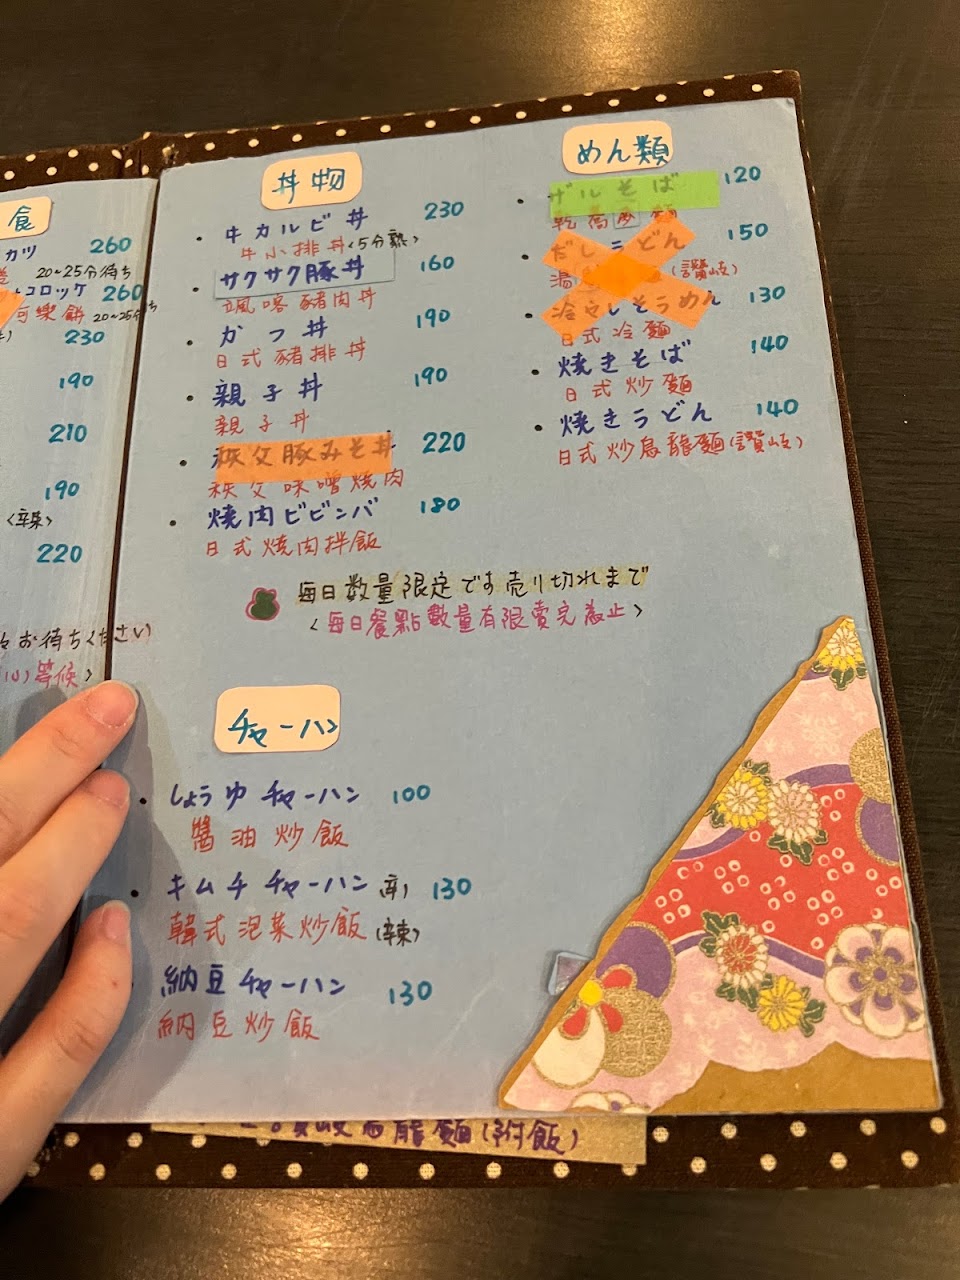 食
カツ 260
20~25分待ち
コロッケ 260
可樂餅 20~25分
230
190
210
190
<辛辣>
220
お待ちください
等候>
丼物
牛カルビ丼 230
牛小排丼<5分熟>
サクサク豚丼 160
颯喀豬肉丼
かつ丼 190
日式豬排丼
親子丼 190
親子丼
秩父豚みそ丼 220
秩父味噌燒肉
焼肉ビビンバ 180
日式燒肉拌飯
毎日数量限定です売り切れまで
<每日餐點數量有限賣完為止>
めん類
ザルそば 120
乾蕎麥麵
だしうどん 150
湯 (讚岐)
冷やしそうめん 130
日式冷麵
焼きそば 140
日式炒麵
焼きうどん 140
日式炒烏龍麵(讚岐)
チャーハン
しょうゆチャーハン 100
醬油炒飯
キムチチャーハン(辛) 130
韓式泡菜炒飯(辛辣)
納豆チャーハン 130
納豆炒飯
麵(附飯)